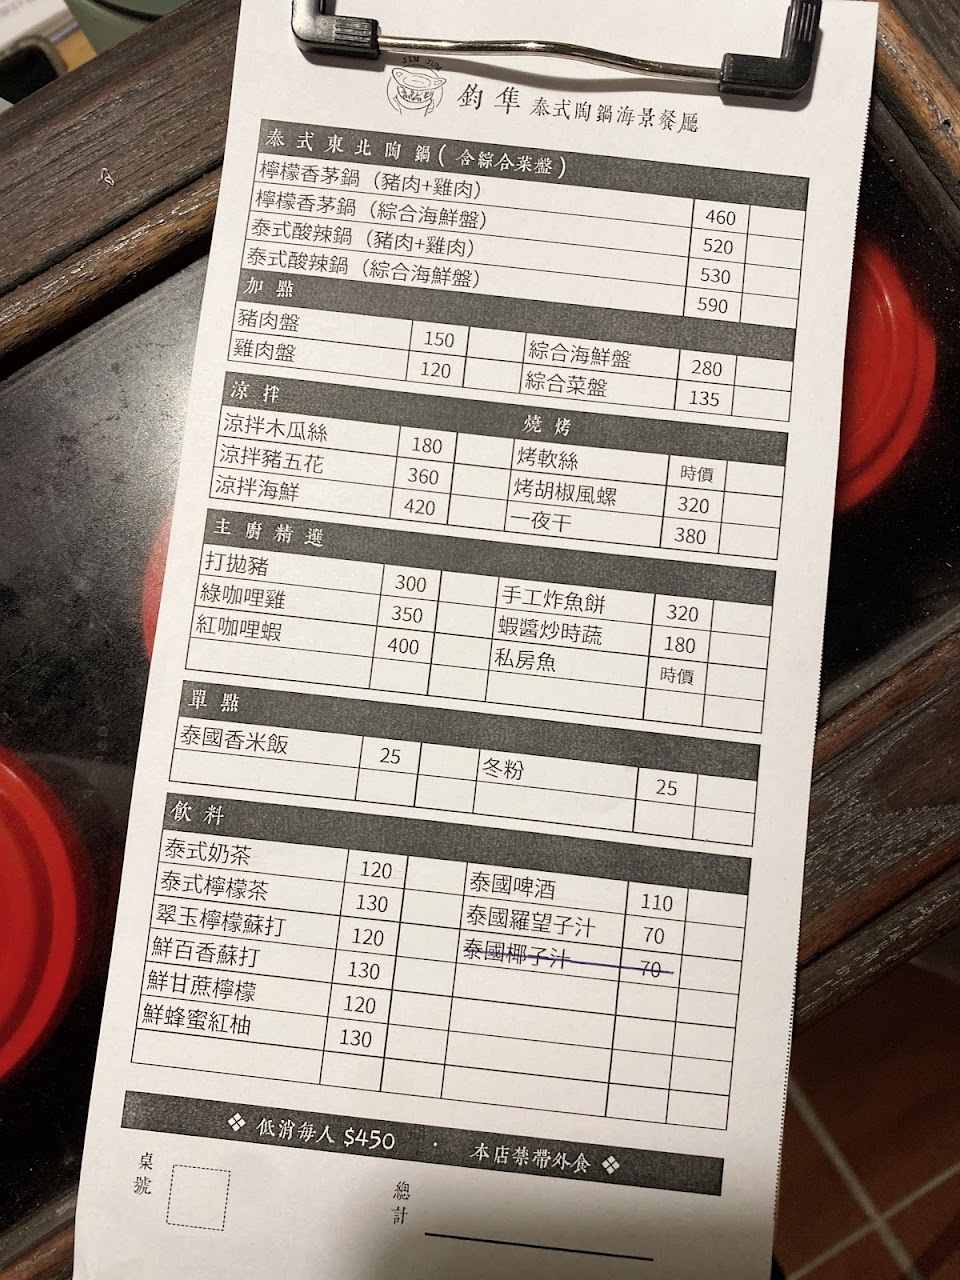 JIM JUM
鈞隼 泰式陶鍋海景餐廳
泰式東北陶鍋(含綜合菜盤)
檸檬香茅鍋（豬肉+雞肉） 460
檸檬香茅鍋（綜合海鮮盤） 520
泰式酸辣鍋（豬肉+雞肉） 530
泰式酸辣鍋（綜合海鮮盤） 590
加點
豬肉盤 150 綜合海鮮盤 280
雞肉盤 120 綜合菜盤 135
涼拌 燒烤
涼拌木瓜絲 180 烤軟絲 時價
涼拌豬五花 360 烤胡椒風螺 320
涼拌海鮮 420 一夜干 380
主廚精選
打拋豬 300 手工炸魚餅 320
綠咖哩雞 350 蝦醬炒時蔬 180
紅咖哩蝦 400 私房魚 時價
單點
泰國香米飯 25 冬粉 25
飲料
泰式奶茶 120 泰國啤酒 110
泰式檸檬茶 130 泰國羅望子汁 70
翠玉檸檬蘇打 120 泰國椰子汁 70
鮮百香蘇打 130
鮮甘蔗檸檬 120
鮮蜂蜜紅柚 130
❖ 低消每人 $450 · 本店禁帶外食 ❖
桌號 總計